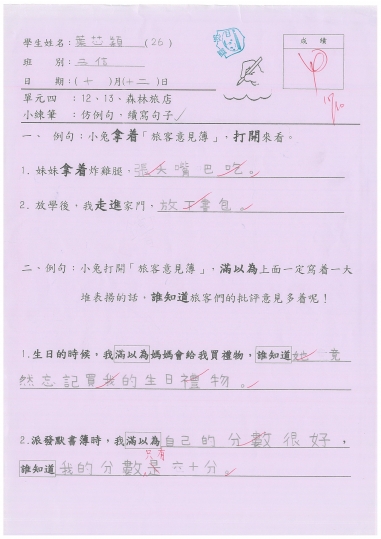 學生姓名：葉芯穎（26）
班　　別：二信
日　　期：（十）月（十二）日
成績
單元四　：12、13、森林旅店
小練筆　：仿例句，續寫句子
一、 例句：小兔拿着「旅客意見薄」，打開來看。
1. 妹妹拿着炸雞腿，張大嘴巴吃。
2. 放學後，我走進家門，放下書包。
二、例句：小兔打開「旅客意見薄」，滿以為上面一定寫着一大
堆表揚的話，誰知道旅客們的批評意見多着呢！
1.生日的時候，我滿以為媽媽會給我買禮物，誰知道她竟
然忘記買我的生日禮物。
2.派發默書薄時，我滿以為自己的分數很好，
只有
誰知道我的分數是六十分。